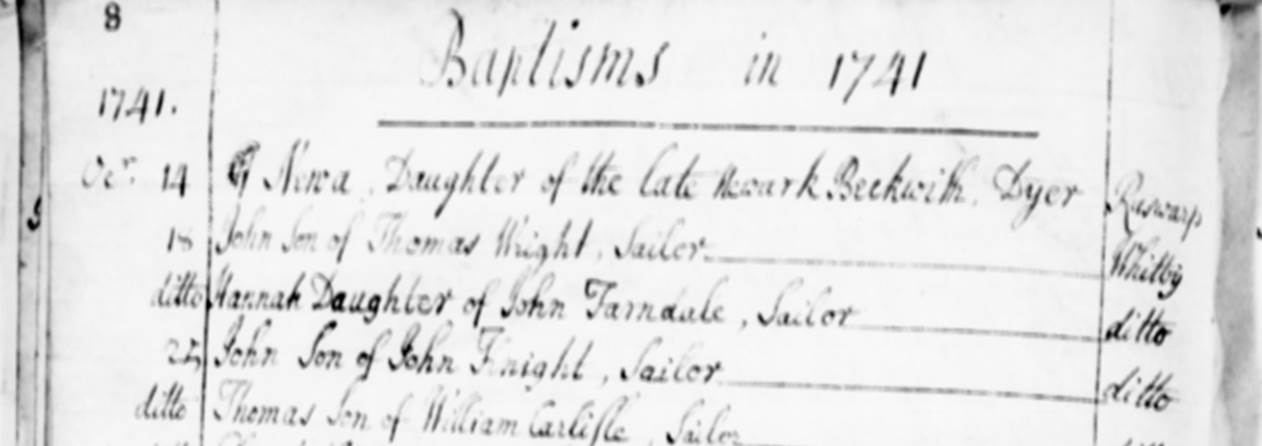 8
Baptisms in 1741
1741.
Ocr. 14 Newa, Daughter of the late Newark Beckwith, Dyer Ruswarp
18 John Son of Thomas Wright, Sailor Whitby
ditto Hannah Daughter of John Farndale, Sailor ditto
John Son of John Knight, Sailor ditto
ditto Thomas Son of William Carlisle, Sailor